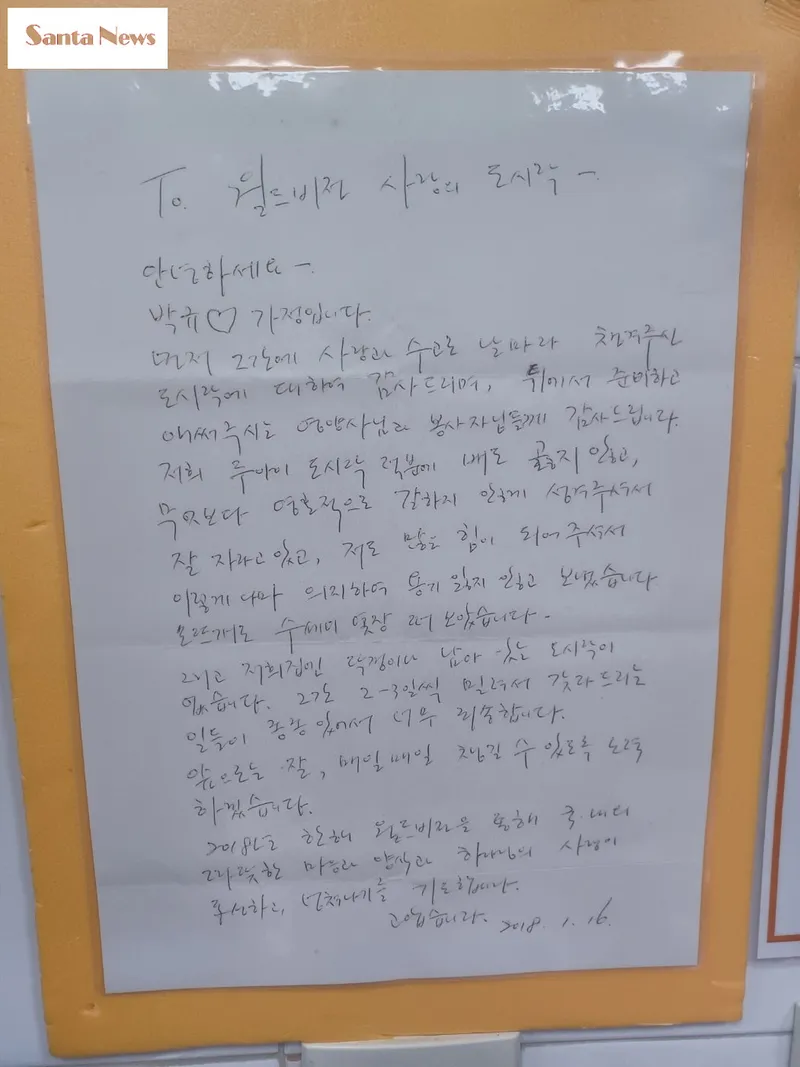 Santa News
To. 월드비전 사랑의 도시락 ~.
안녕하세요 ~.
박규♡ 가정입니다.
먼저 그간에 사랑과 수고로 날마다 챙겨주신
도시락에 대하여 감사드리며, 뒤에서 준비하고
애써주시는 영양사님과 봉사자님들께 감사드립니다.
저희 두아이 도시락 덕분에 배도 곯지 않고,
무엇보다 영혼적으로 갈하지 않게 섬겨주셔서
잘 자라고 있고, 저도 많은 힘이 되어 주셔서
이렇게 나마 의지하여 용기 잃지 않고 보냈습니다
수세미 몇장 떠 보았습니다 ~
그리고 저희집엔 남아 있는 도시락이
없습니다. 그간 2-3일씩 밀려서 갖다 드리는
일들이 종종 있어서 너무 죄송합니다.
앞으로는 잘, 매일매일 챙길 수 있도록 노력
하겠습니다.
2018년도 한해 월드비전을 통해 국·내외
따뜻한 마음과 양식과 하나님의 사랑이
풍성하고, 넘쳐나기를 기도합니다.
고맙습니다. 2018. 1. 16.